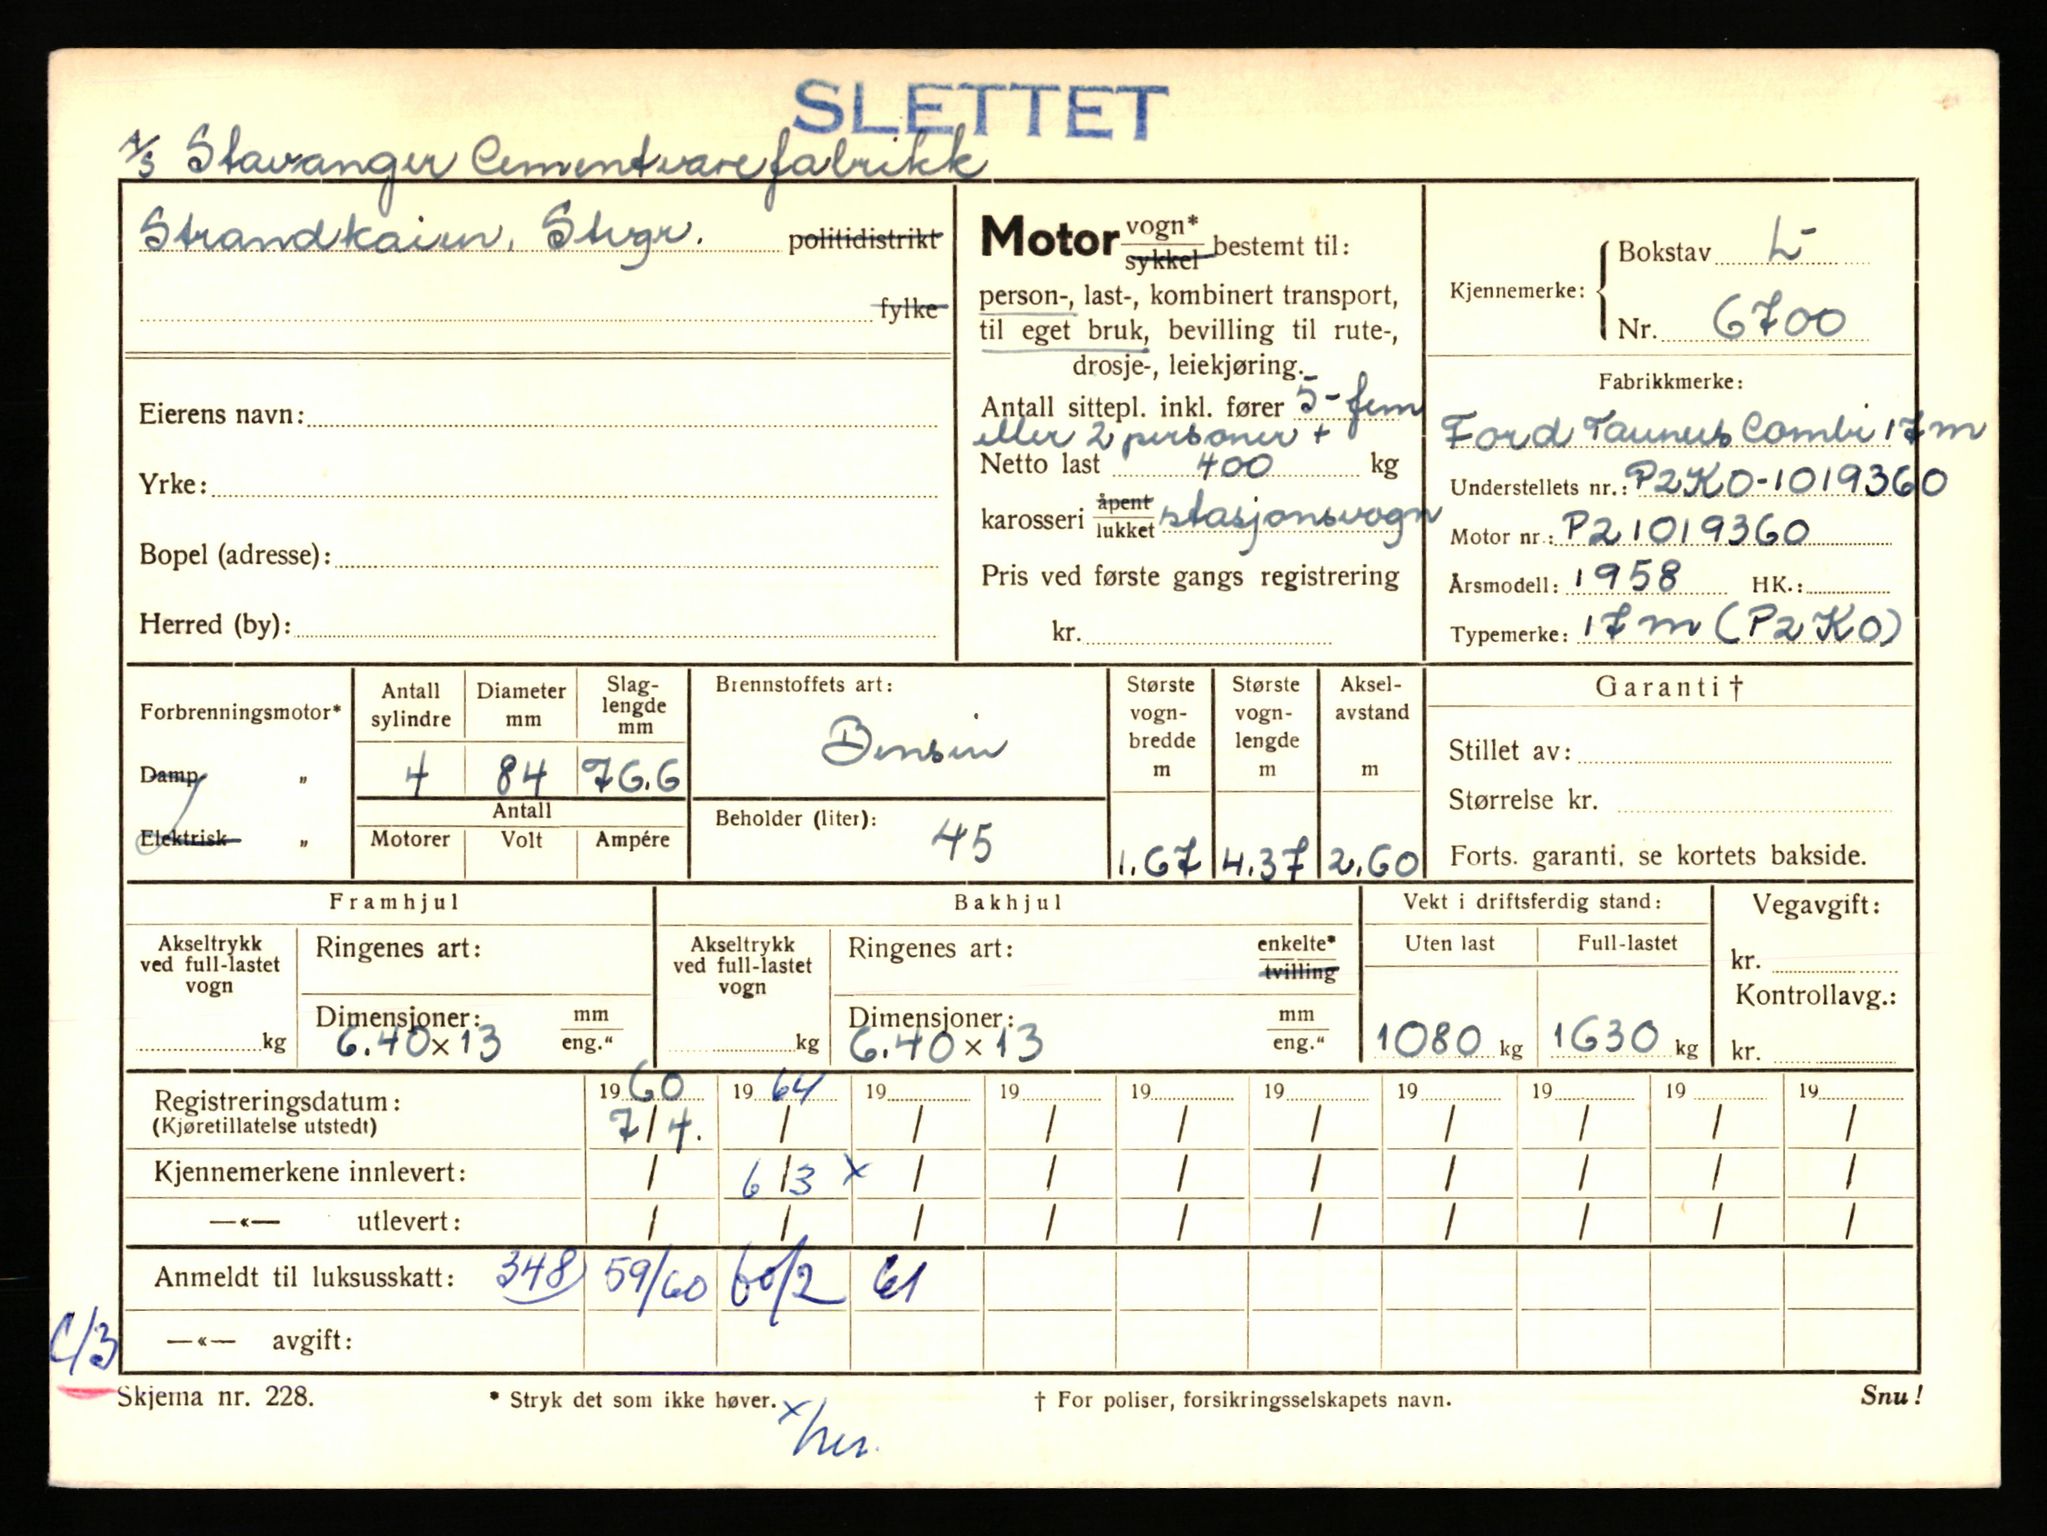 SLETTET
A/S Stavanger Cementvarefabrikk
Strandkaien, Stvgr. politidistrikt
fylke
Eierens navn:
Yrke:
Bopel (adresse):
Herred (by):
Motor vogn* sykkel bestemt til:
person-, last-, kombinert transport,
til eget bruk, bevilling til rute-,
drosje-, leiekjøring.
Antall sittepl. inkl. fører 5-fem
eller 2 personer +
Netto last 400 kg
karosseri åpent lukket stasjonsvogn
Pris ved første gangs registrering
kr.
Kjennemerke: Bokstav L-
Nr. 6700
Fabrikkmerke:
Ford Taunus Combi 17m
Understellets nr.: P2K0-1019360
Motor nr.: P21019360
Årsmodell: 1958 HK.:
Typemerke: 17m (P2K0)
Forbrenningsmotor*
Damp "
Elektrisk "
Antall sylindre
Diameter mm
Slag-lengde mm
4 84 76.6
Antall
Motorer Volt Ampére
Brennstoffets art:
Bensin
Beholder (liter):
45
Største vogn-bredde m
1.67
Største vogn-lengde m
4.37
Aksel-avstand m
2.60
Garanti †
Stillet av:
Størrelse kr.
Forts. garanti, se kortets bakside.
Framhjul
Akseltrykk ved full-lastet vogn
kg
Ringenes art:
Dimensjoner: mm
6.40 x 13 eng."
Bakhjul
Akseltrykk ved full-lastet vogn
kg
Ringenes art: enkelte* tvilling
Dimensjoner: mm
6.40 x 13 eng."
Vekt i driftsferdig stand:
Uten last Full-lastet
1080 kg 1630 kg
Vegavgift:
kr.
Kontrollavg.:
kr.
Registreringsdatum: 1960 1964 19 19 19 19 19 19 19 19
(Kjøretillatelse utstedt) 7/4. / / / / / / / / /
Kjennemerkene innlevert: / 6/3 x / / / / / / / /
—«— utlevert: / / / / / / / / / /
Anmeldt til luksusskatt: 348 59/60 60/2 61
—«— avgift:
C/3
Skjema nr. 228. * Stryk det som ikke høver. † For poliser, forsikringsselskapets navn. Snu!
x/